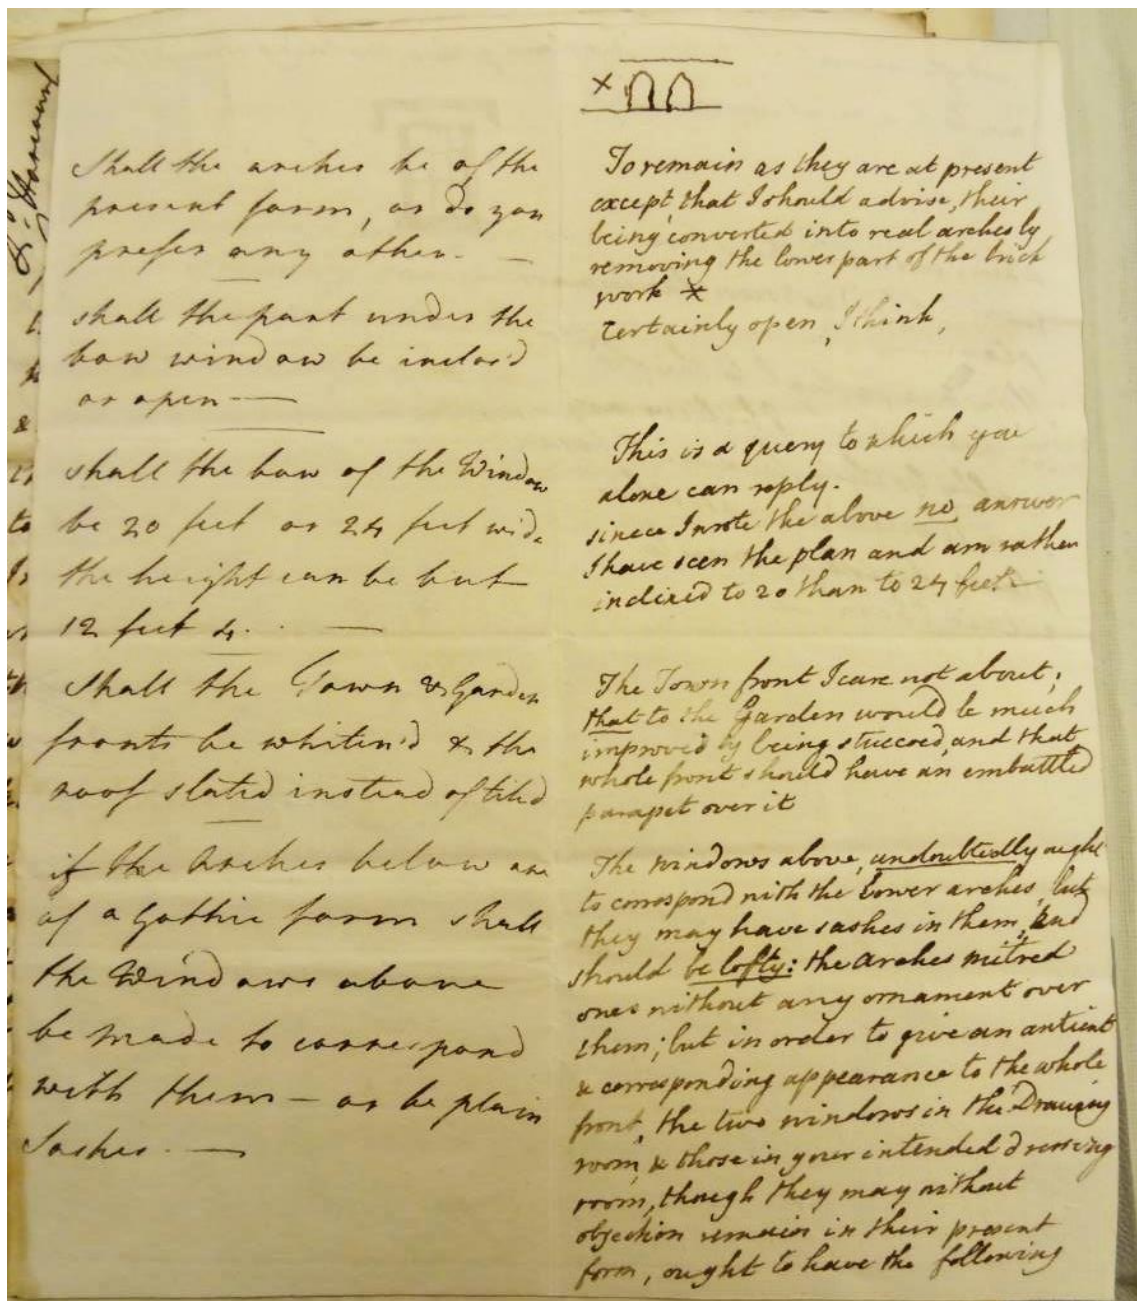 Shall the arches be of the
present form, or do you
prefer any other. —
shall the part under the
bow window be inclos'd
or open —
shall the bow of the Window
be 20 feet or 24 feet wide
the height can be but
12 feet 4. —
Shall the Town & Garden
fronts be whiten'd & the
roof slated instead of tiled
if the Arches below are
of a Gothic form shall
the Windows above
be made to correspond
with them — or be plain
Sashes. —
×
To remain as they are at present
except, that I should advise, their
being converted into real arches by
removing the lower part of the brick
work ×
Certainly open, I think,
This is a query to which you
alone can reply.
since I wrote the above no answer
I have seen the plan and am rather
inclined to 20 than to 24 feet.
The Town front I care not about;
that to the Garden would be much
improved by being stuccoed, and that
whole front should have an embattled
parapet over it
The windows above, undoubtedly ought
to correspond with the lower arches, but
they may have sashes in them, and
should be lofty: the arches mitred
ones without any ornament over
them; but in order to give an antient
& corresponding appearance to the whole
front, the two windows in the Drawing
room, & those in your intended dressing
room, though they may without
objection remain in their present
form, ought to have the following